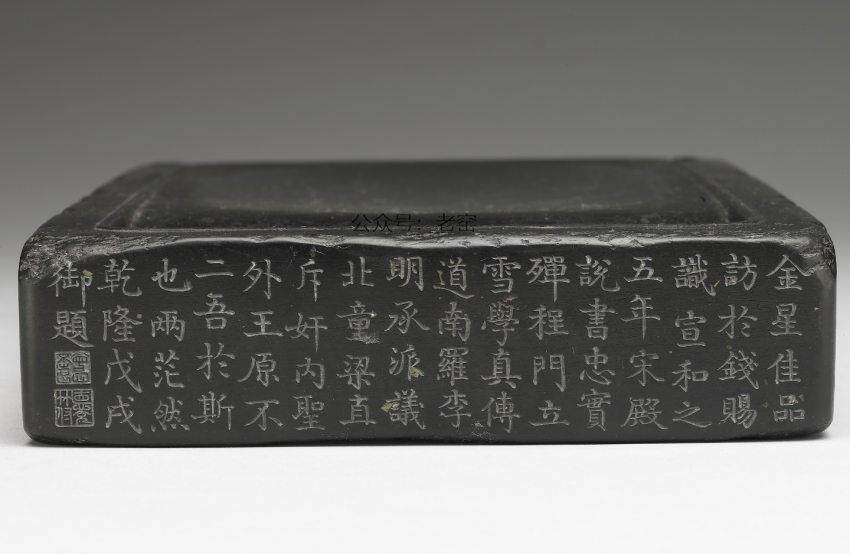 金星佳品
訪於錢賜
識宣和之
五年宋殿
說書忠實
殫程門立
雪學真傳
道南羅李
明承派議
北童梁直
斥奸內聖
外王原不
二吾於斯
也兩茫然
乾隆戊戌
御題
公众号：老窑